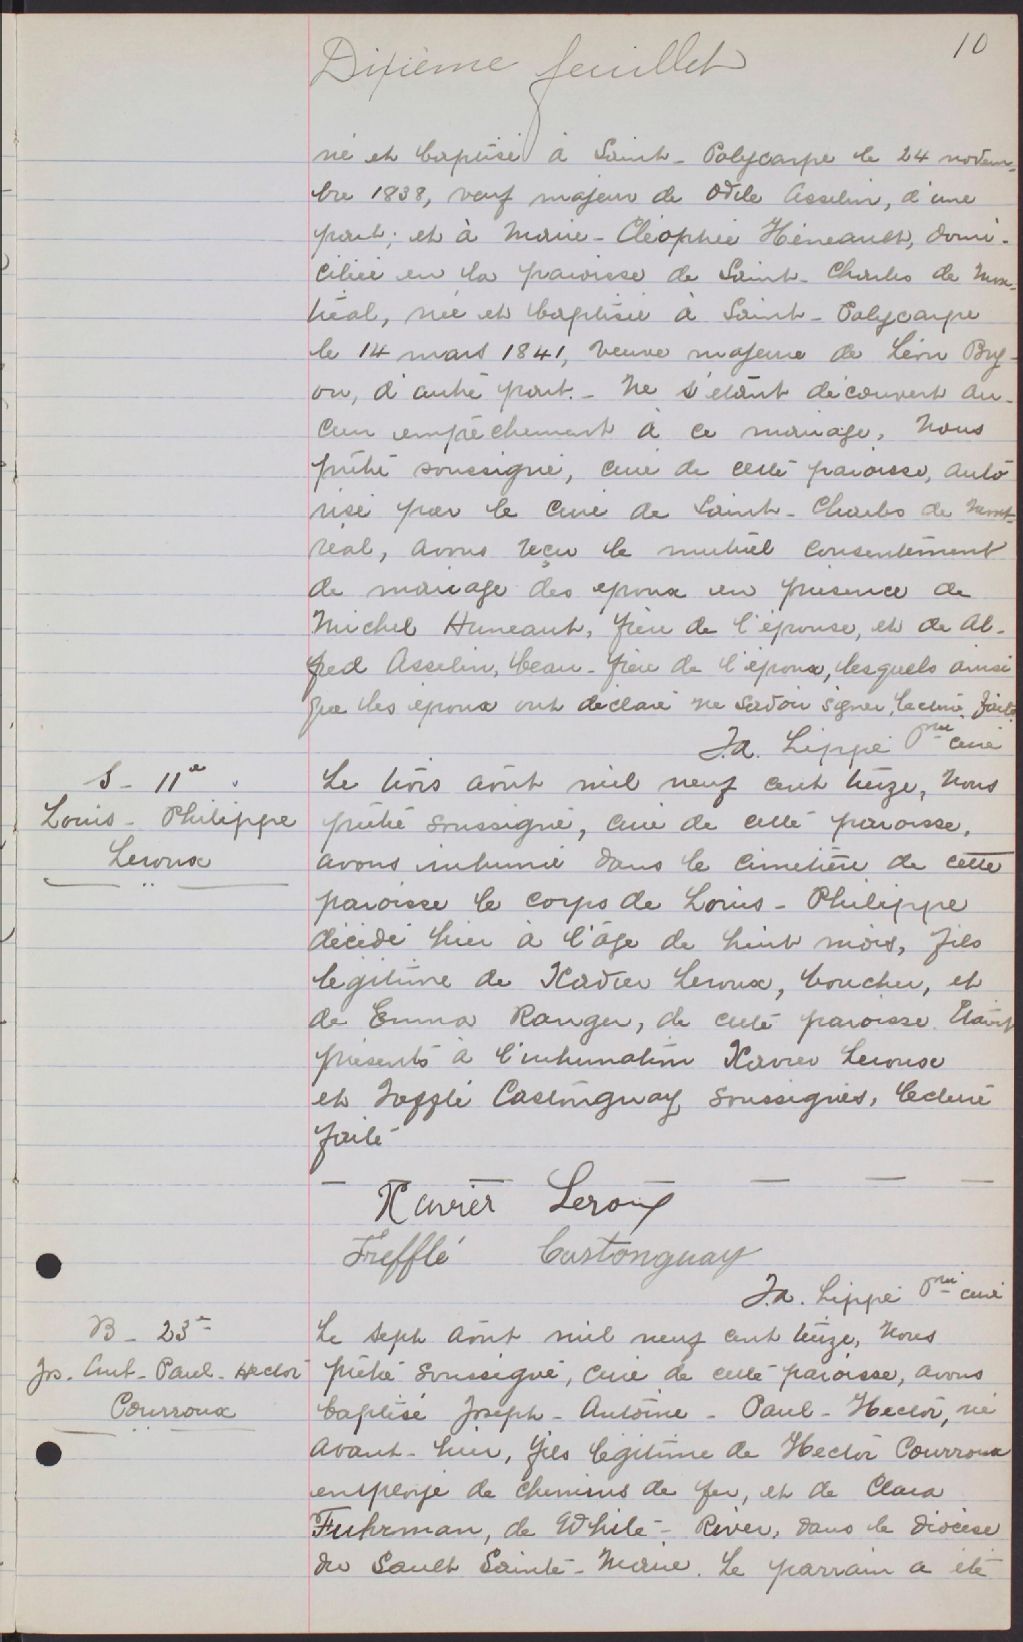 10
Dixième feuillet
né et baptisé à Saint-Polycarpe le 24 novem-
bre 1838, veuf majeur de Odile Asselin, d'une
part; et à Marie-Cléophée Héneault, domi-
ciliée en la paroisse de Saint-Charles de Mon-
tréal, née et baptisée à Saint-Polycarpe
le 14 mars 1841, veuve majeure de Léon Bry-
on, d'autre part.- Ne s'étant découvert au-
cun empêchement à ce mariage, Nous
prêtre soussigné, curé de cette paroisse, auto
risé par le curé de Saint-Charles de Mont-
réal, avons reçu le mutuel consentement
de mariage des époux en présence de
Michel Huneaut, frère de l'épouse, et de Al-
fred Asselin, beau-frère de l'époux, lesquels ainsi
que les époux ont déclaré ne savoir signer, lecture faite
J.A. Lippé Ptre curé
S - 11e
Louis-Philippe
Leroux
Le trois août mil neuf cent treize, Nous
prêtre soussigné, curé de cette paroisse,
avons inhumé dans le cimetière de cette
paroisse le corps de Louis-Philippe
décédé hier à l'âge de huit mois, fils
légitime de Xavier Leroux, boucher, et
de Emma Ranger, de cette paroisse. Etaient
présents à l'inhumation Xavier Leroux
et Trefflé Castonguay soussignés, lecture
faite
Xavier Leroux
Trefflé Castonguay
J.A. Lippé Ptre curé
B - 23e
Jos. Ant-Paul-Hector
Courroux
Le sept août mil neuf cent treize, Nous
prêtre soussigné, curé de cette paroisse, avons
baptisé Joseph-Antoine-Paul-Hector, né
avant-hier, fils légitime de Hector Courroux
employé de chemins de fer, et de Clara
Fuhrman, de White-River, dans le diocèse
du Sault Sainte-Marie. Le parrain a été